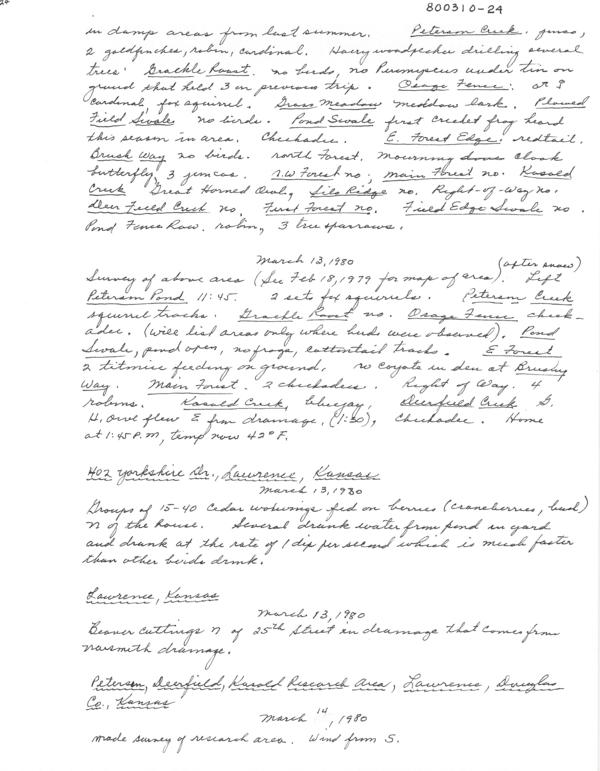 800310-24
in damp areas from last summer. Peterson Creek. junco,
2 goldfinches, robin, cardinal. Hairy woodpecker drilling several
trees. Grackle Roost. no birds, no Peromyscus under tin on
ground that held 3 on previous trip. Osage Fence:
cardinal, fox squirrel. Grass Meadow meadow lark. Plowed
Field Swale no birds. Pond Swale first cricket frog heard
this season in area. Chickadee. E. Forest Edge: redtail.
Brush Way no birds. north Forest. Mourning cloak
butterfly, 3 juncos. N.W Forest no, main Forest no. Kasold
Creek Great Horned Owl, Silo Ridge no. Right-of-Way no.
Deer Field Creek no. First Forest no. Field Edge Swale no.
Pond Fence Row. robin, 3 tree sparrows.
March 13, 1980 (after snow)
Survey of above area (See Feb 18, 1979 for map of area). Left
Peterson Pond 11:45. 2 sets fox squirrels. Peterson Creek
squirrel tracks. Grackle Roost no. Osage Fence chick-
adee. (will list areas only where birds were observed). Pond
Swale, pond open, no frogs, cottontail tracks. E Forest
2 titmice feeding on ground. no coyote in den at Brushy
Way. Main Forest. 2 chickadees. Right of Way. 4
robins. Kasold Creek, bluejay, Deerfield Creek G.
H. owl flew E from drainage, (1:30), Chickadee. Home
at 1:45 P.M, temp now 42°F.
402 Yorkshire Dr., Lawrence, Kansas
March 13, 1980
Groups of 15-40 Cedar waxwings fed on berries (craneberries, )
N of the house. Several drank water from pond in yard
and drank at the rate of 1 dip per second which is much faster
than other birds drink.
Lawrence, Kansas
March 13, 1980
Beaver cuttings N of 25th Street in drainage that comes from
naismith drainage.
Peterson, Deerfield, Kasold Research Area, Lawrence, Douglas
Co., Kansas
March 14, 1980
made survey of research area. Wind from S.